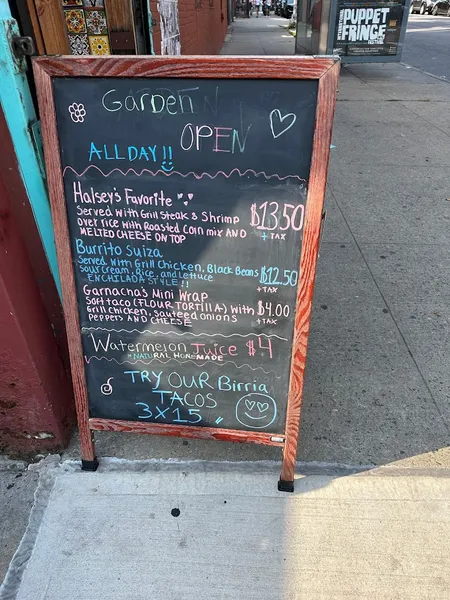 PUPPET
FRINGE
Garden
OPEN
ALL DAY!!
Halsey's Favorite
Served with Grill Steak & Shrimp
over rice with Roasted Corn mix AND
MELTED CHEESE ON TOP
$13.50
+ TAX
Burrito Suiza
Served with Grill Chicken, Black Beans
sour cream, Rice, and Lettuce
ENCHILADA STYLE!!
$12.50
+ TAX
Garnacha's Mini Wrap
Soft taco (FLOUR TORTILLA) with
Grill chicken, sauteed onions
Peppers AND CHEESE
$4.00
+ TAX
Watermelon Juice $4
*NATURAL HOMEMADE
TRY OUR Birria
TACOS
3X15